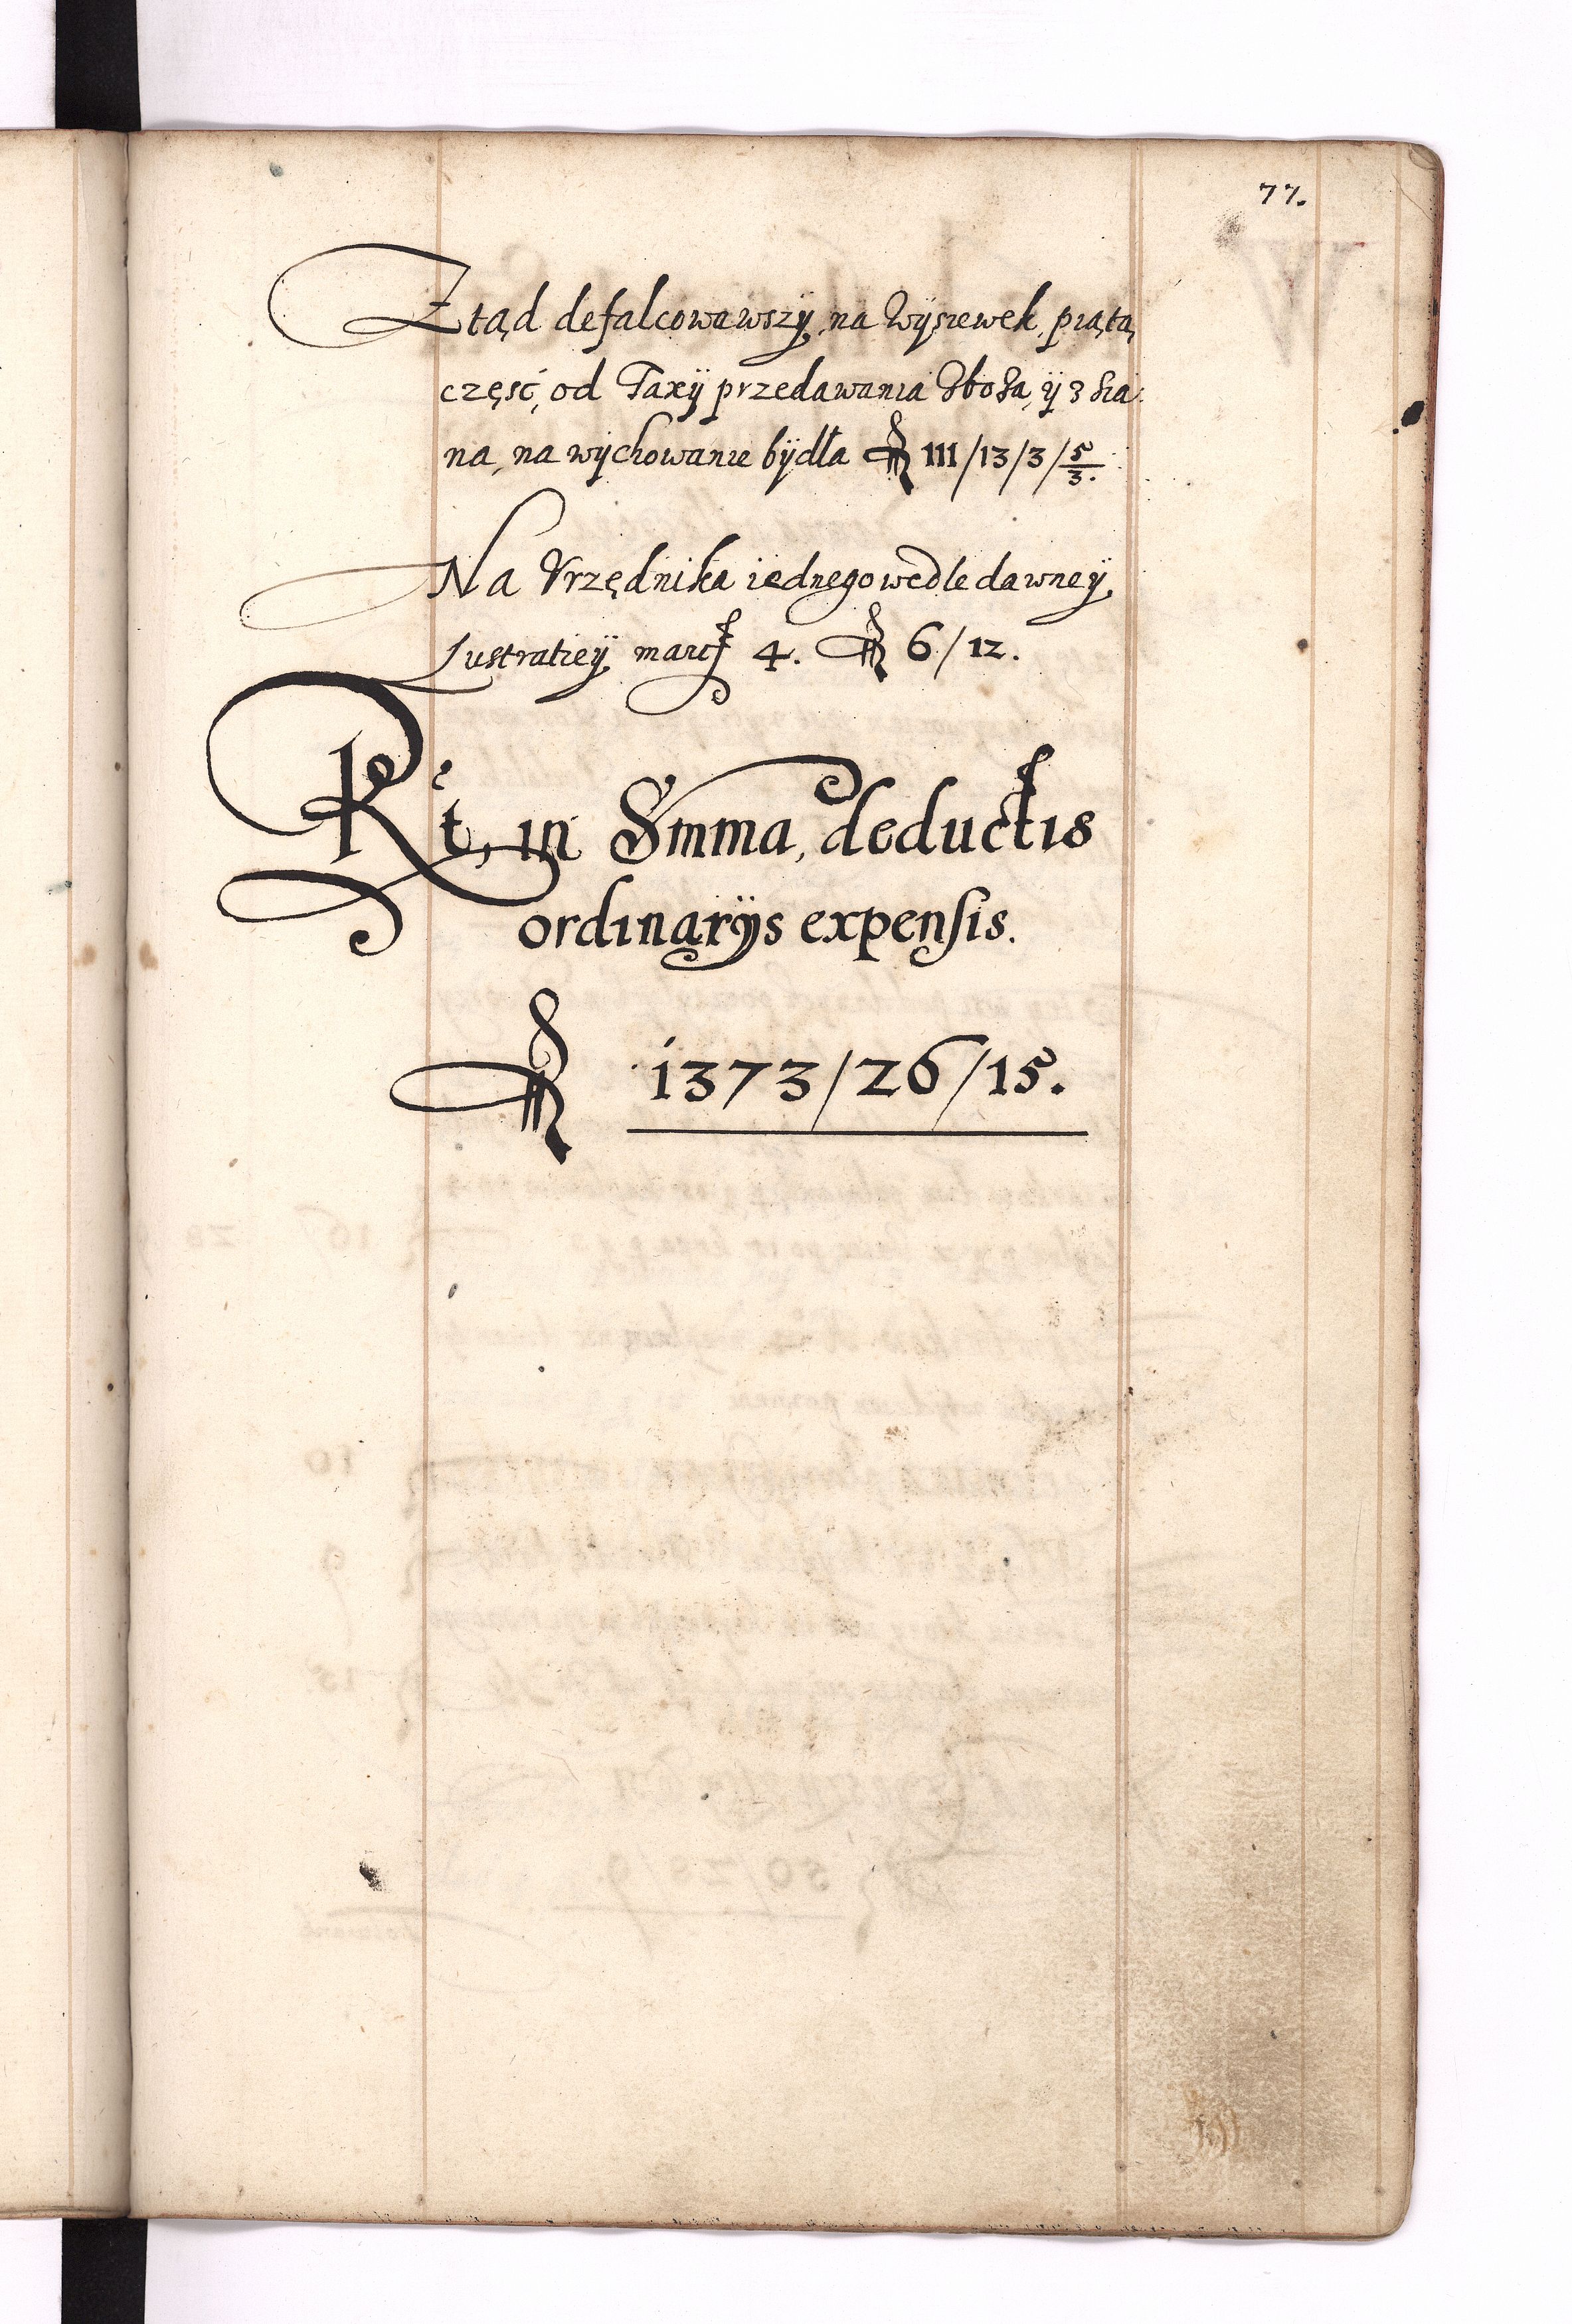 77.
Ztąd defalcowawszÿ, na Wÿsiewek, piątą
część, od Taxÿ przedawania Zboża, ÿ z sia:
na, na wÿchowanie bÿdła fl 111/13/3/5/3.
Na Vrzędnika iednego wedle dawneÿ
lustratieÿ marcf 4. fl 6/12.
Rẻt, in Summa, deductis
ordinarÿs expensis.
fl 1373/26/15.